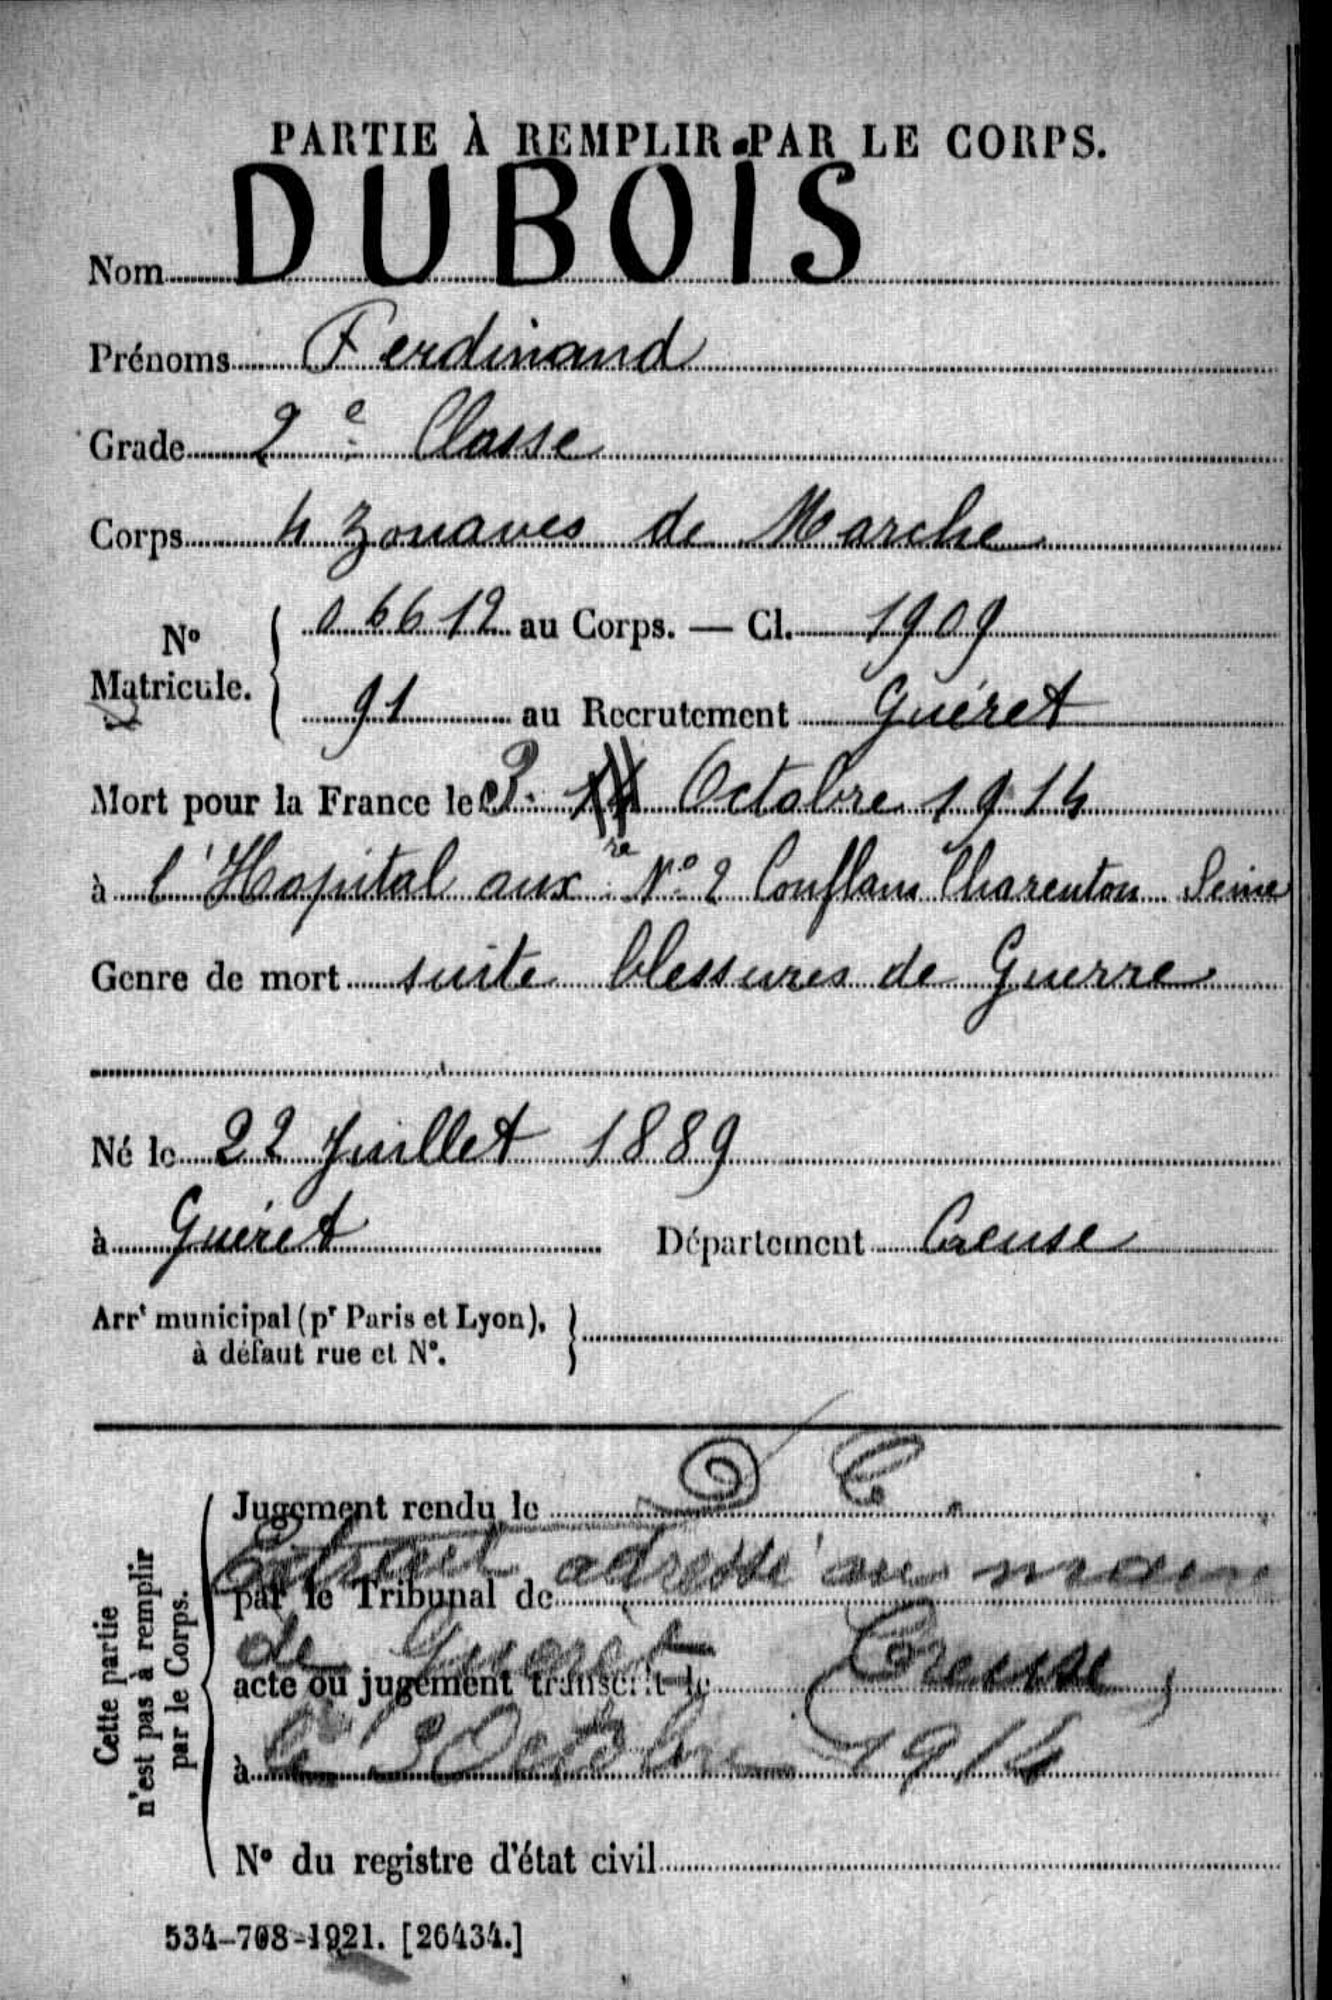 PARTIE À REMPLIR PAR LE CORPS.
Nom DUBOIS
Prénoms Ferdinand
Grade 2e Classe
Corps 4 Zouaves de Marche
No Matricule. 06612 au Corps. — Cl. 1909
91 au Recrutement Guéret
Mort pour la France le 3 14 Octobre 1914
à l'Hopital auxre No 2 Conflans Charenton Seine
Genre de mort suite blessures de Guerre
Né le 22 Juillet 1889
à Guéret Département Creuse
Arrt municipal (pr Paris et Lyon),
à défaut rue et No.
Cette partie
n'est pas à remplir
par le Corps.
Jugement rendu le
Extrait adressé au maire
par le Tribunal de
de Guéret Creuse,
acte ou jugement transcrit le
le 3 Octobre 1914
à
No du registre d'état civil
534-708-1921. [26434.]